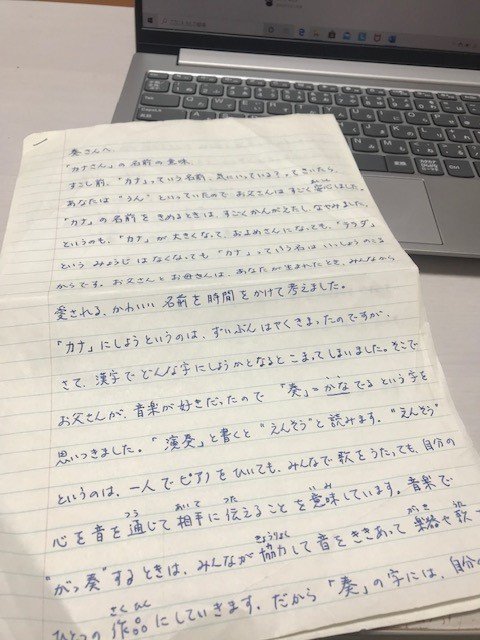 奏さんへ、
「カナさん」の名前の意味、
すこし前、「カナ」っていう名前、気に入っている？ってきいたら、
あなたは"うん"といっていたのでお父さんはすごく安心しました。
「カナ」の名前をきめるときは、すごくかんがえたし、なやみました。
というのも、"カナ"が大きくなって、およめさんになっても、"テラダ"
というみょうじはなくなっても"カナ"っていう名はいっしょうのこる
からです。お父さんとお母さんは、あなたが生まれたとき、みんなから
愛される、かわいい名前を時間をかけて考えました。
「カナ」にしようというのは、ずいぶんはやくきまったのですが、
さて、漢字でどんな字にしようかとなるとこまってしまいました。そこで
お父さんが、音楽が好きだったので「奏」=かなでるという字を
思いつきました。「演奏」と書くと"えんそう"と読みます。"えんそう"
というのは、一人でピアノをひいても、みんなで歌をうたっても、自分の
心を音を通じて相手に伝えることを意味しています。音楽で
"がっ奏"するときは、みんなが協力して音をききあって楽器や歌
ひとつの作品にしていきます。だから「奏」の字には、自分